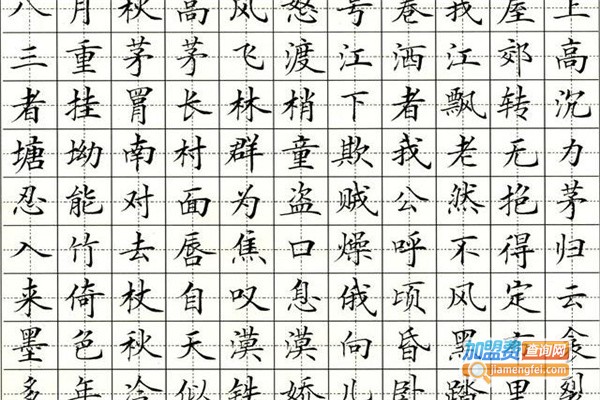 八月秋高风怒号卷我屋上
三重茅茅飞渡江洒江郊高
者挂罥长林梢下者飘转沉
塘坳南村群童欺我老无力
忍能对面为盗贼公然抱茅
入竹去唇焦口燥呼不得归
来倚杖自叹息俄顷风定云
墨色秋天漠漠向昏黑
多年冷似铁娇儿卧踏里裂
加盟费查询网
www.jiamengfei.com